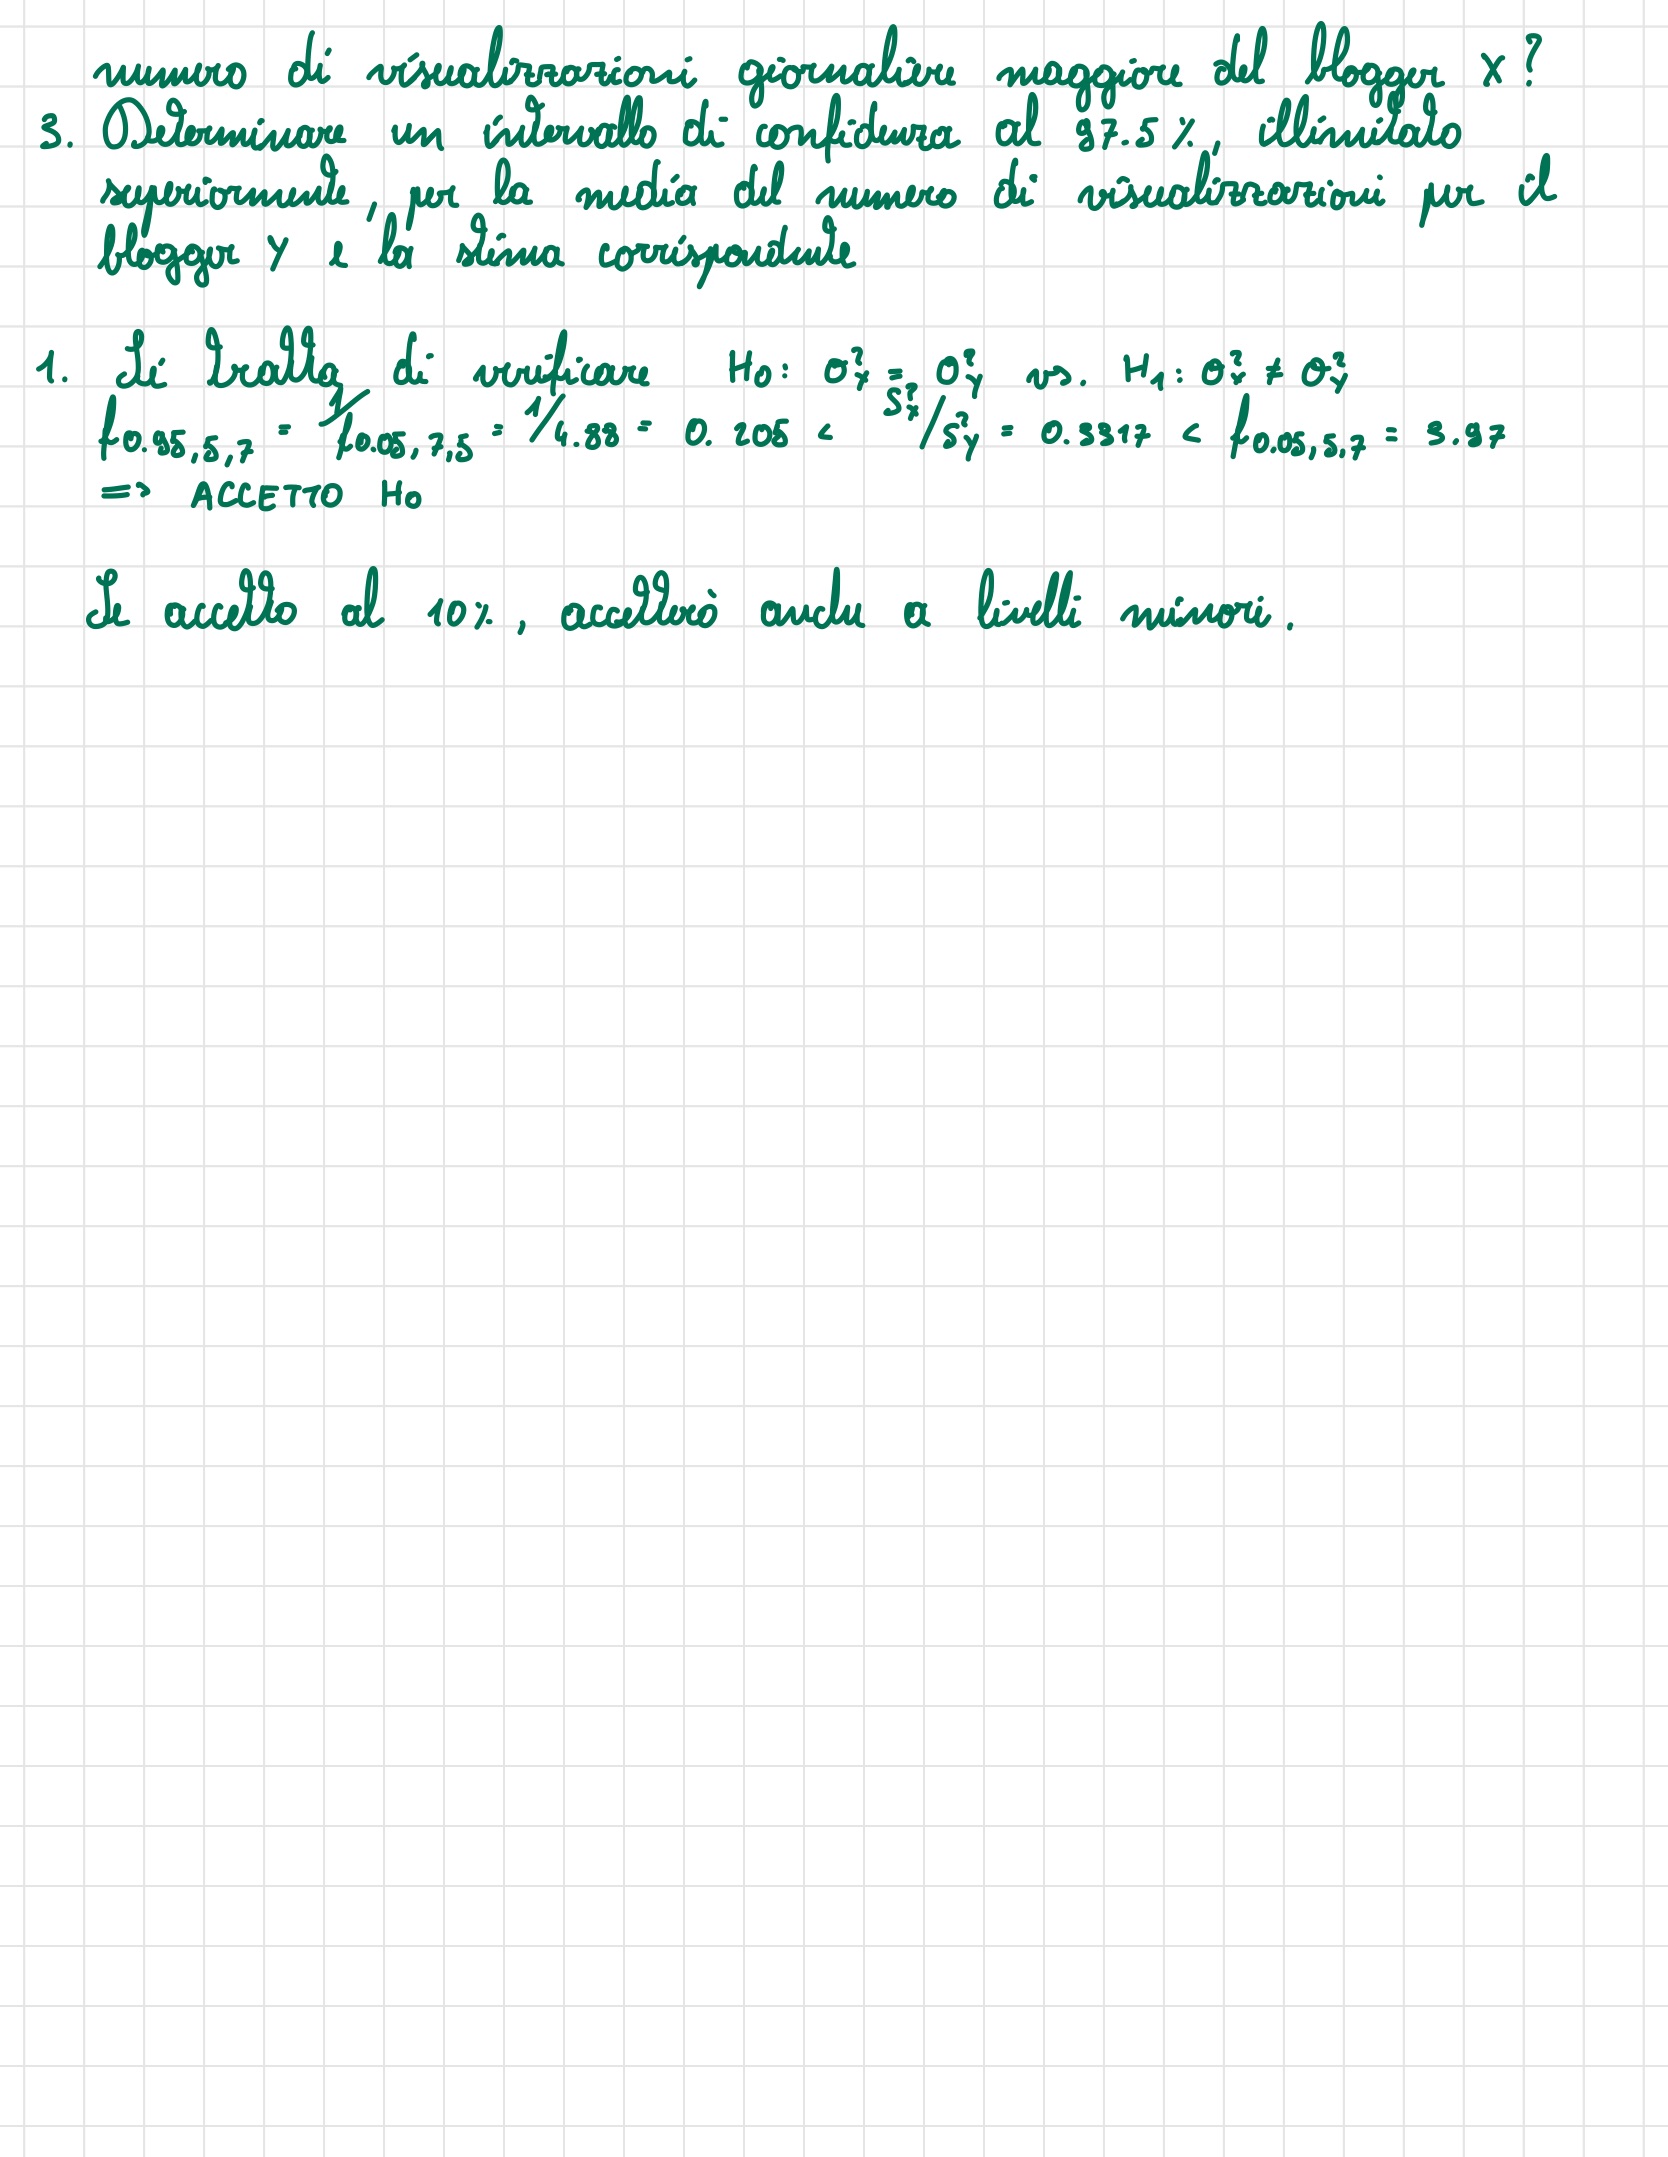 numero di visualizzazioni giornaliere maggiore del blogger X?
3. Determinare un intervallo di confidenza al 97.5%, illimitato
superiormente, per la media del numero di visualizzazioni per il
blogger Y e la stima corrispondente
1. Si tratta di verificare H₀: σ²ₓ = σ²ᵧ vs. H₁: σ²ₓ ≠ σ²ᵧ
f0.95,5,7 = 1/f0.05,7,5 = 1/4.88 = 0.205 < S²ₓ/S²ᵧ = 0.3317 < f0.05,5,7 = 3.97
=> ACCETTO H₀
Se accetto al 10%, accetterò anche a livelli minori.